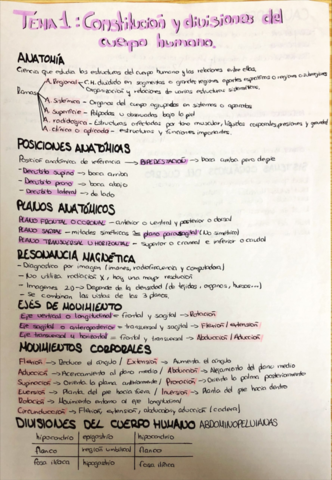 TEMA 1: Constitución y divisiones del
cuerpo humano.
ANATOMÍA
Ciencia que estudia las estructuras del cuerpo humano y las relaciones entre ellas.
A. Regional → C.H. dividido en segmentos o grandes regiones
Ramas
Organización y relaciones de varias estructuras sistemáticas.
A. Sistémica - Órganos del cuerpo agrupados en sistemas o aparatos
A. superficie - bajo la piel
A. radiológica - Estructuras
A. clínica o aplicada - estructuras y funciones importantes.
POSICIONES ANATÓMICAS
Posición anatómica de referencia → BIPEDESTACIÓN → Boca arriba
- Decúbito supino → boca arriba
- Decúbito prono → boca abajo
- Decúbito lateral → de lado
PLANOS ANATÓMICOS
PLANO FRONTAL O CORONAL → anterior o ventral y posterior o dorsal
PLANO SAGITAL → mitades simétricas plano parasagital (No simétrico)
PLANO TRANSVERSAL U HORIZONTAL → Superior o craneal e inferior o caudal
RESONANCIA MAGNÉTICA
- Diagnóstico por imagen (imanes, radiofrecuencia y computadora)
- No utiliza radiación X / hay una mayor resolución
- Imágenes 2D → Depende de la densidad (de tejidos, órganos, huesos...)
- Se combinan las vistas de los 3 planos.
EJES DE MOVIMIENTO
Eje vertical o longitudinal = frontal y sagital → Rotación
Eje sagital o anteroposterior = transversal y sagital → Flexión / extensión
Eje transversal y horizontal = frontal y transversal → Abducción / Aducción
MOVIMIENTOS CORPORALES
Flexión → Reducir el ángulo / Extensión → Aumenta el ángulo
Aducción → Acercamiento al plano medio / Abducción → Alejamiento del plano medio
Supinación → Girando la palma anteriormente / Pronación → Girando la palma posteriormente
Eversión → Planta del pie hacia fuera / Inversión → Planta del pie hacia dentro
Rotación → Movimiento entorno al eje longitudinal
Circunducción → Flexión, extensión, abducción, aducción (cadera)
DIVISIONES DEL CUERPO HUMANO ABDOMINOPELVIANAS
hipocondrio epigastrio hipocondrio
flanco región umbilical flanco
fosa ilíaca hipogastrio fosa ilíaca